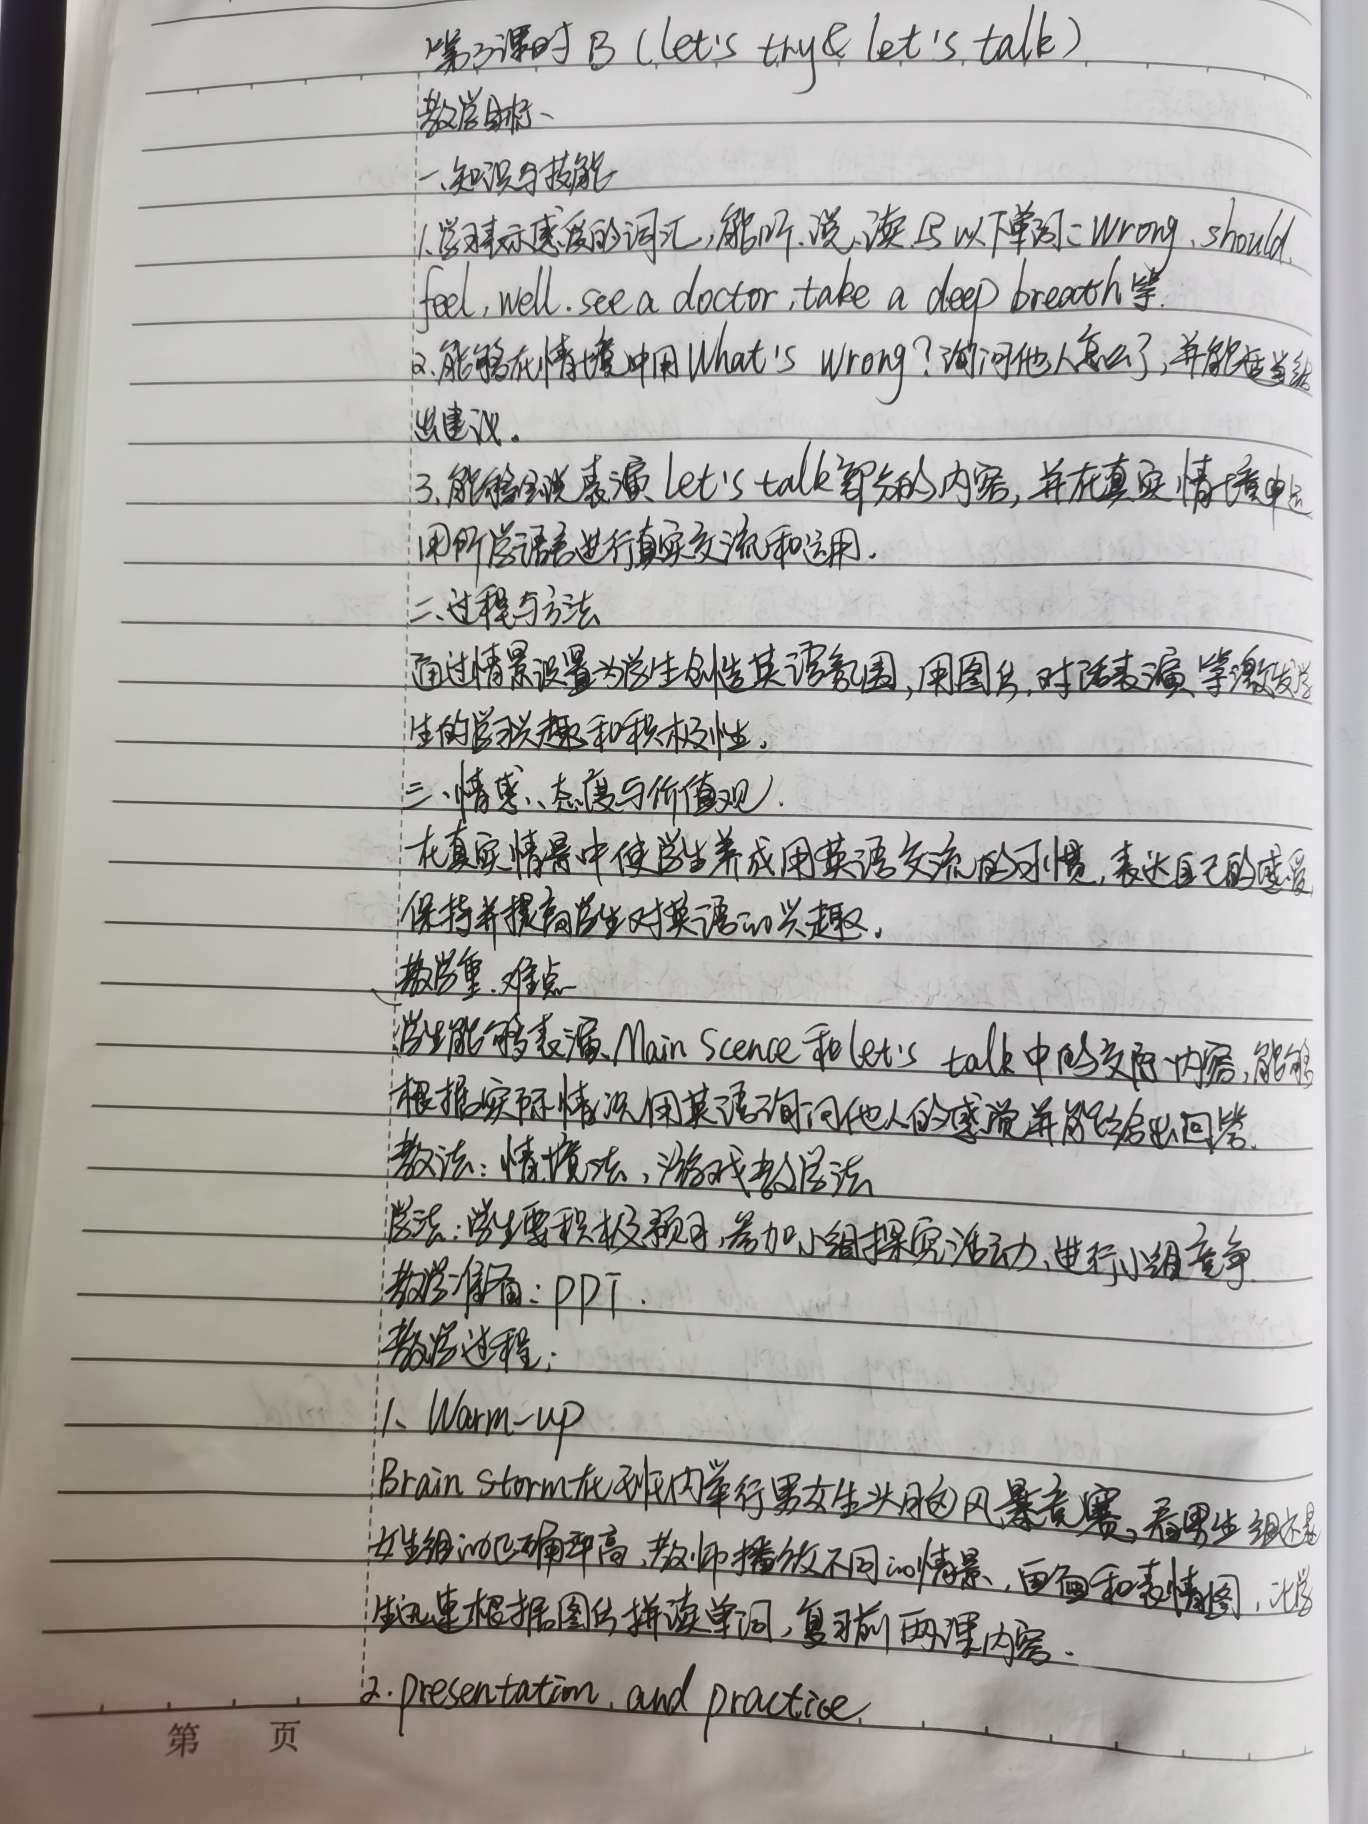 第三课时 B (let's try & let's talk)
教学目标、
一、知识与技能
1.学习表示感受的词汇,能听、说、读、写以下单词: wrong、should、
feel, well. see a doctor, take a deep breath等.
2.能够在情境中用What's wrong?询问他人怎么了,并能适当给
出建议。
3.能够会说表演Let's talk部分的内容,并在真实情境中运
用所学语言进行真实交流和运用.
二、过程与方法
通过情景设置为学生创造英语氛围,用图片,对话表演等激发学
生的学习兴趣和积极性。
三、情感、态度与价值观.
在真实情景中使学生养成用英语交流的习惯,表达自己的感受
保持并提高学生对英语的兴趣。
教学重、难点
学生能够表演Main Scence和let's talk中的交际内容,能够
根据实际情况用英语询问他人的感觉并能够给出回答.
教法:情境法、游戏教学法
学法:学生要积极预习,参加小组探究活动、进行小组竞争
教学准备: PPT.
教学过程:
1、Warm-up
Brain storm在班内举行男女生头脑风暴竞赛,看男生组还是
女生组的正确率高,教师播放不同的情景,画面和表情图,让学
生迅速根据图片拼读单词,复习前两课内容.
2. presentation and practice
第 页